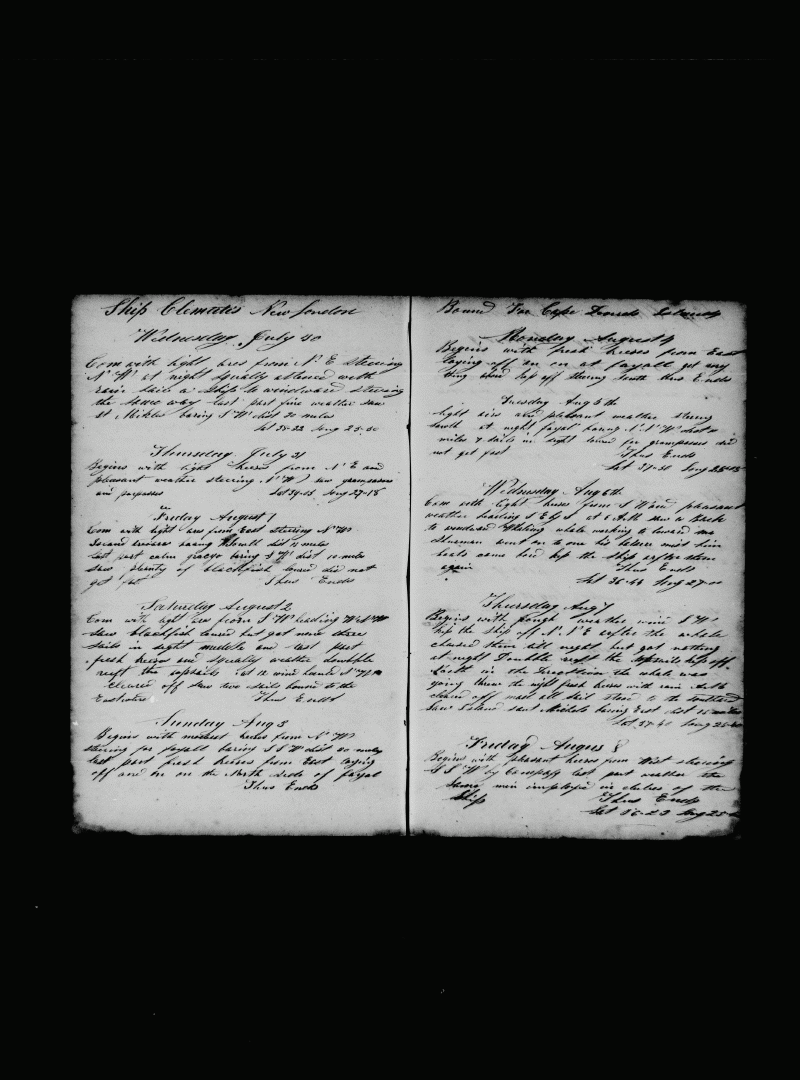 Ship Clematis New London
Wednesday July 30
Com with light ares from N E steering
N W at night squally attend with
rain saw a Ship to windward steering
the same way last part fine weather saw
St Mikles baring S W dist 20 miles
Lat 38-22 Long 25-50
Thursday July 31
Begins with light breses from N E and
pleasant weather steering N W saw grampuses
and porpoises Lat 39-05 Long 27-18
Friday August 1
Com with light ares from East steering N W
Island baring South dist 15 miles
last part calm baring S W dist 10 miles
saw plenty of blackfish lowrd did not
get fast Thus Ends
Saturday August 2
Com with light ares from S W heading W N W
saw blackfish lowrd but got none three
sails in sight middle and last part
fresh breses and squally weather dowbble
reeft the topsails at 12 wind hauld N W
cleared off saw two sails bound to the
Eastward Thus Ends
Sunday Aug 3
Begins with modest breses from N W
steering for fayall baring S S W dist 20 miles
last part fresh breses from East laying
off and on on the North side of fayal
Thus Ends
Bound For Cape Deverds Islands
Monday August 4
Begins with fresh breses from East
laying off an on at fayall got every
thing abord kep off stering South thus Ends
Tuesday Aug 5th
light aires and pleasant weather stering
South at night fayal baring N N W dist
miles 7 sails in sight lowrd for grampuses did
not get fast Thus Ends
Lat 37-50 Long 28-
Wednesday Aug 6th
Com with light breses from S Ward pleasant
weather heading S E by S at 6 AM saw a Bark
to windward whaling whale working to leward one
went on to one his laber mist him
boats came bord kep the ship after them
again Thus Ends
Lat 36-44 Long 27-00
Thursday Aug 7
Begins with rough weather wind S W
kep the ship off N N E after the whale
chased them till night but got nothing
at night Doubble reeft the topsails kep off
North in the Direction the whale was
going threw the night fresh breses with rain At 6
cleard off made all sail stood to the southard
Saw Island saint Michels baring East dist 15 miles
Lat 37-41 Long 26-
Friday Augus 8
Begins with pleasant breses from West steering
S S W by Compass last part weather the
same men imployed in duties of the
Ship Thus Ends
Lat 36-23 Long 25-